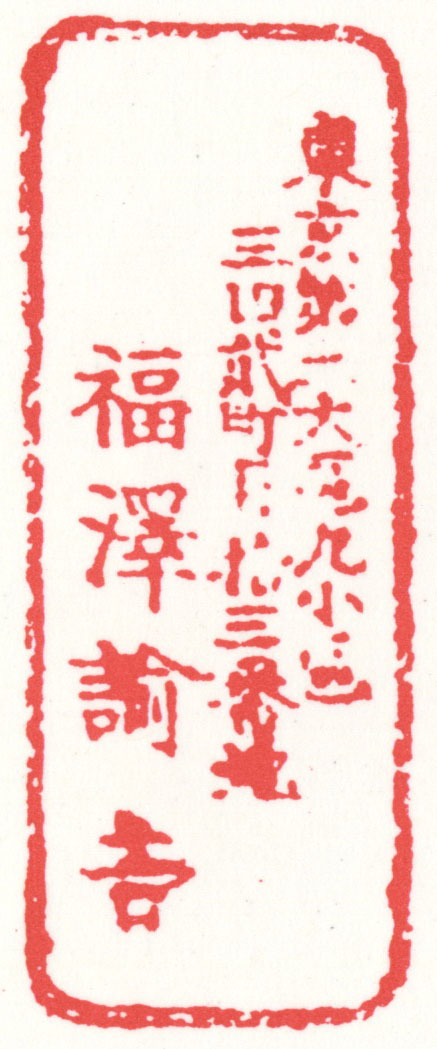 東京第二大區九小區
三田貳町目拾三番地
福澤諭吉